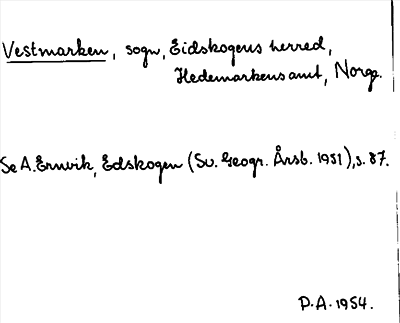 Vestmarken, sogn, Eidskogens herred,
Hedemarkens amt, Norge.
Se A. Ernvik, Edskogen (Sv. Geogr. Årsb. 1951), s. 87.
P.A. 1954.